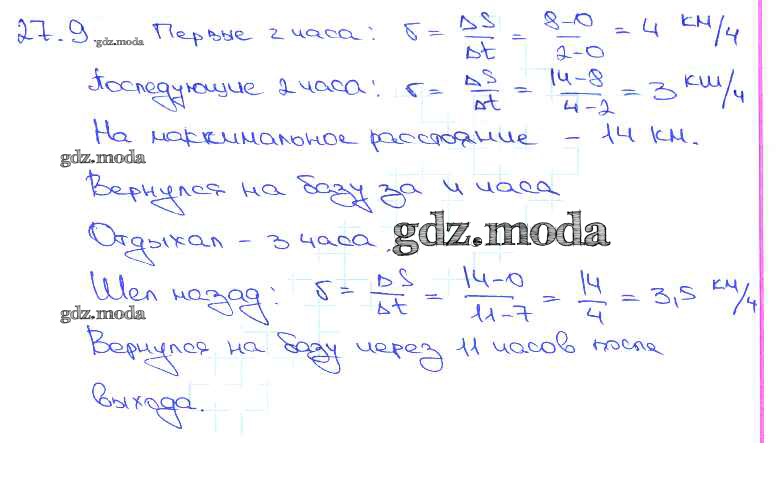 27.9 gdz.moda Первые 2 часа: υ = ΔS/Δt = (8-0)/(2-0) = 4 км/ч
Последующие 2 часа: υ = ΔS/Δt = (14-8)/(4-2) = 3 км/ч
На максимальное расстояние - 14 км.
gdz.moda
Вернулся на базу за 4 часа
Отдыхал - 3 часа. gdz.moda
Шел назад: υ = ΔS/Δt = (14-0)/(11-7) = 14/4 = 3,5 км/ч
gdz.moda
Вернулся на базу через 11 часов после
выхода.